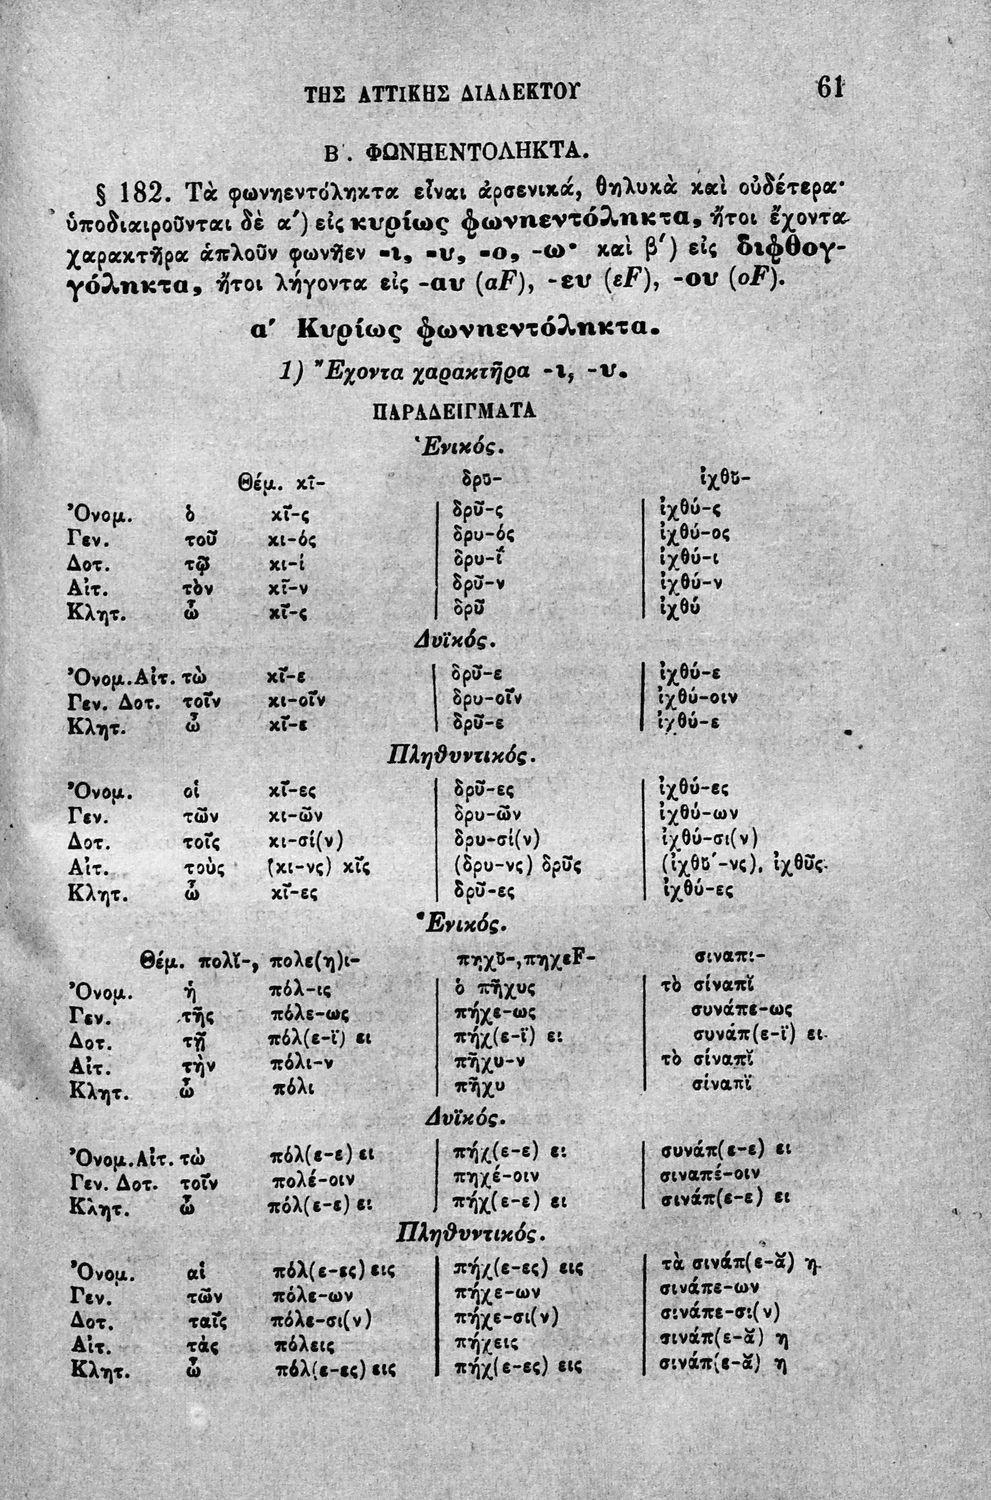 ΤΗΣ ΑΤΤΙΚΗΣ ΔΙΑΛΕΚΤΟΥ 61
Β΄. ΦΩΝΗΕΝΤΟΛΗΚΤΑ.
§ 182. Τὰ φωνηεντόληκτα εἶναι ἀρσενικά, θηλυκὰ καὶ οὐδέτερα·
ὑποδιαιροῦνται δὲ α΄) εἰς κυρίως φωνηεντόληκτα, ἤτοι ἔχοντα
χαρακτῆρα ἁπλοῦν φωνῆεν -ι, -υ, -ο, -ω· καὶ β΄) εἰς διφθογ-
γόληκτα, ἤτοι λήγοντα εἰς -αυ (αF), -ευ (εF), -ου (οF).
α΄ Κυρίως φωνηεντόληκτα.
1) Ἔχοντα χαρακτῆρα -ι, -υ.
ΠΑΡΑΔΕΙΓΜΑΤΑ
Ἑνικός.
Θέμ. κῐ- δρῠ- ἰχθῠ-
Ὀνομ. ὁ κῖ-ς δρῦ-ς ἰχθύ-ς
Γεν. τοῦ κι-ός δρυ-ός ἰχθύ-ος
Δοτ. τῷ κι-ί δρυ-ΐ ἰχθύ-ι
Αἰτ. τὸν κῖ-ν δρῦ-ν ἰχθύ-ν
Κλητ. ὦ κῖ-ς δρῦ ἰχθύ
Δυϊκός.
Ὀνομ.Αἰτ. τὼ κῖ-ε δρῦ-ε ἰχθύ-ε
Γεν. Δοτ. τοῖν κι-οῖν δρυ-οῖν ἰχθύ-οιν
Κλητ. ὦ κῖ-ε δρῦ-ε ἰχθύ-ε
Πληθυντικός.
Ὀνομ. οἱ κῖ-ες δρῦ-ες ἰχθύ-ες
Γεν. τῶν κι-ῶν δρυ-ῶν ἰχθύ-ων
Δοτ. τοῖς κι-σί(ν) δρυ-σί(ν) ἰχθύ-σι(ν)
Αἰτ. τοὺς (κι-νς) κῖς (δρυ-νς) δρῦς (ἰχθῠ΄-νς), ἰχθῦς.
Κλητ. ὦ κῖ-ες δρῦ-ες ἰχθύ-ες
Ἑνικός.
Θέμ. πολῐ-, πολε(η)ι- πηχῠ-, πηχεF- σιναπι-
Ὀνομ. ἡ πόλ-ις ὁ πῆχυς τὸ σίναπῐ
Γεν. τῆς πόλε-ως πήχε-ως συνάπε-ως
Δοτ. τῇ πόλ(ε-ϊ) ει πήχ(ε-ϊ) ει συνάπ(ε-ϊ) ει.
Αἰτ. τὴν πόλι-ν πῆχυ-ν τὸ σίναπῐ
Κλητ. ὦ πόλι πῆχυ σίναπῐ
Δυϊκός.
Ὀνομ.Αἰτ. τὼ πόλ(ε-ε) ει πήχ(ε-ε) ει συνάπ(ε-ε) ει
Γεν. Δοτ. τοῖν πολέ-οιν πηχέ-οιν σιναπέ-οιν
Κλητ. ὦ πόλ(ε-ε) ει πήχ(ε-ε) ει σινάπ(ε-ε) ει
Πληθυντικός.
Ὀνομ. αἱ πόλ(ε-ες) εις πήχ(ε-ες) εις τὰ σινάπ(ε-ᾰ) η.
Γεν. τῶν πόλε-ων πήχε-ων σινάπε-ων
Δοτ. ταῖς πόλε-σι(ν) πήχε-σι(ν) σινάπε-σι(ν)
Αἰτ. τὰς πόλεις πήχεις σινάπ(ε-ᾰ) η
Κλητ. ὦ πόλ(ε-ες) εις πήχ(ε-ες) εις σινάπ(ε-ᾰ) η